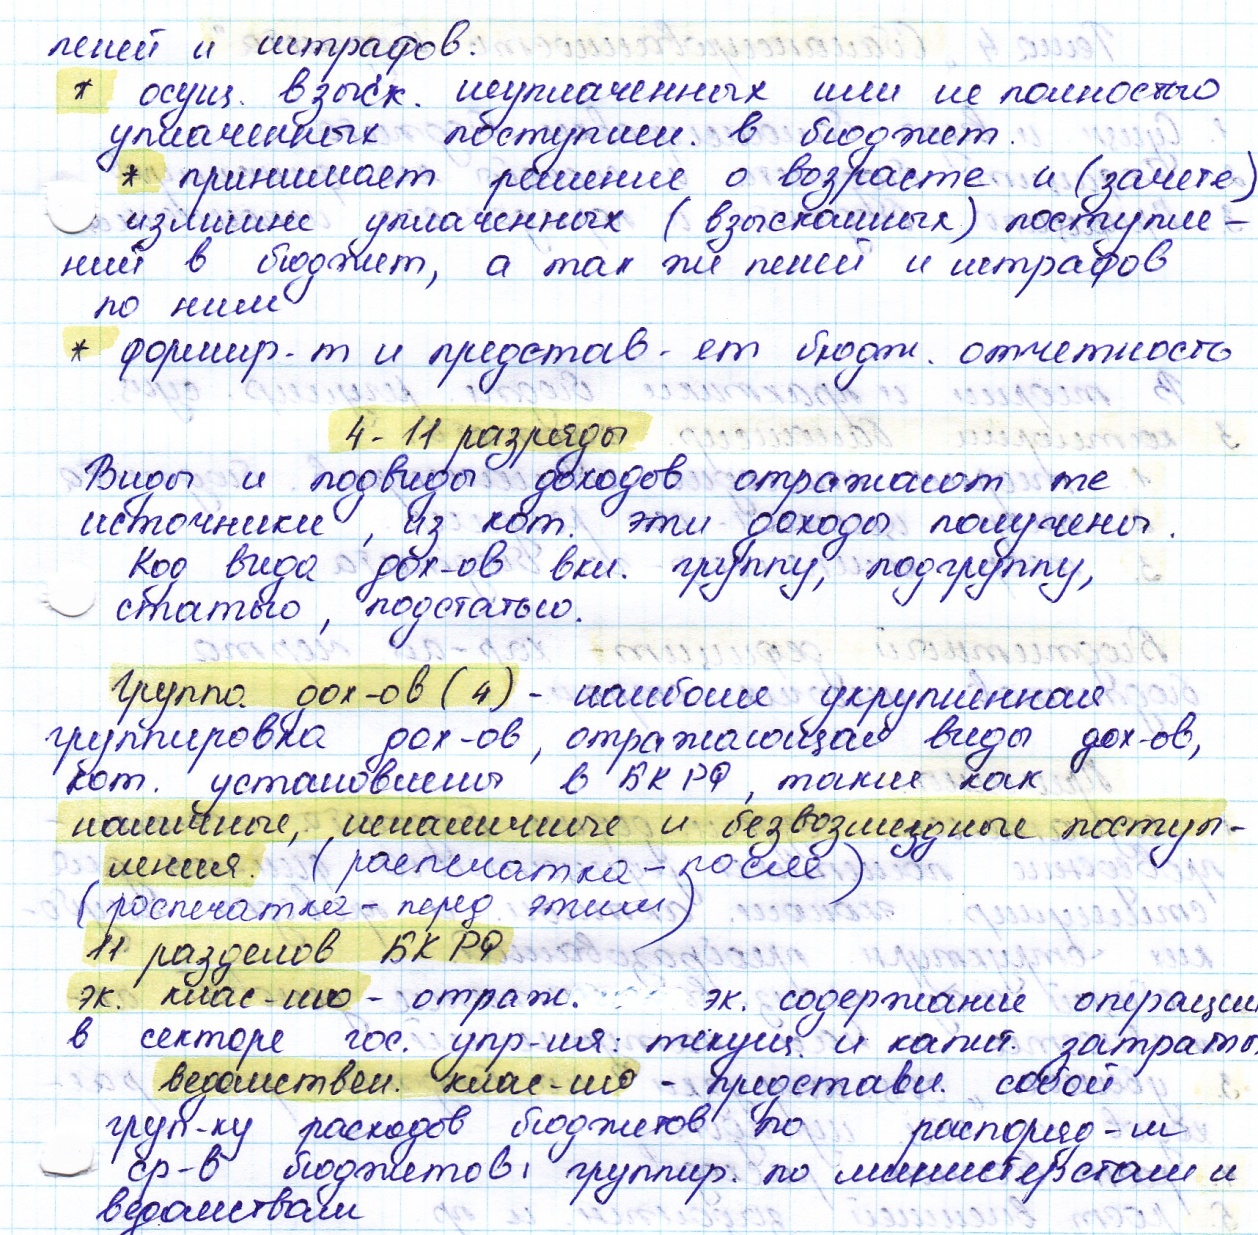 пеней и штрафов.
* осущ. взыск. неуплаченных или не полностью
уплаченных поступлен. в бюджет.
* принимает решение о возрасте и (зачете)
излишне уплаченных (взысканных) поступле-
ний в бюджет, а так же пеней и штрафов
по ним
* формир-т и представ-ет бюдж. отчетность
4-11 разряды
Виды и подвиды доходов отражают те
источники, из кот. эти доходы получены.
Код вида дох-ов вкл. группу, подгруппу,
статью, подстатью.
Группа дох-ов (4) - наиболее укрупненная
группировка дох-ов, отражающая виды дох-ов,
кот. установлены в БК РФ, такие как
наличные, неналичные и безвозмездные поступ-
ления. (распечатка - после)
(распечатка - перед этим)
11 разделов БК РФ
эк. клас-ию - отраж. эк. содержание операции
в секторе гос. упр-ия: текущ. и капит. затраты
ведомствен. клас-ию - представл. собой
груп-ку расходов бюджетов по распоряд-м
ср-в бюджетов, группир. по министерствам и
ведомствам